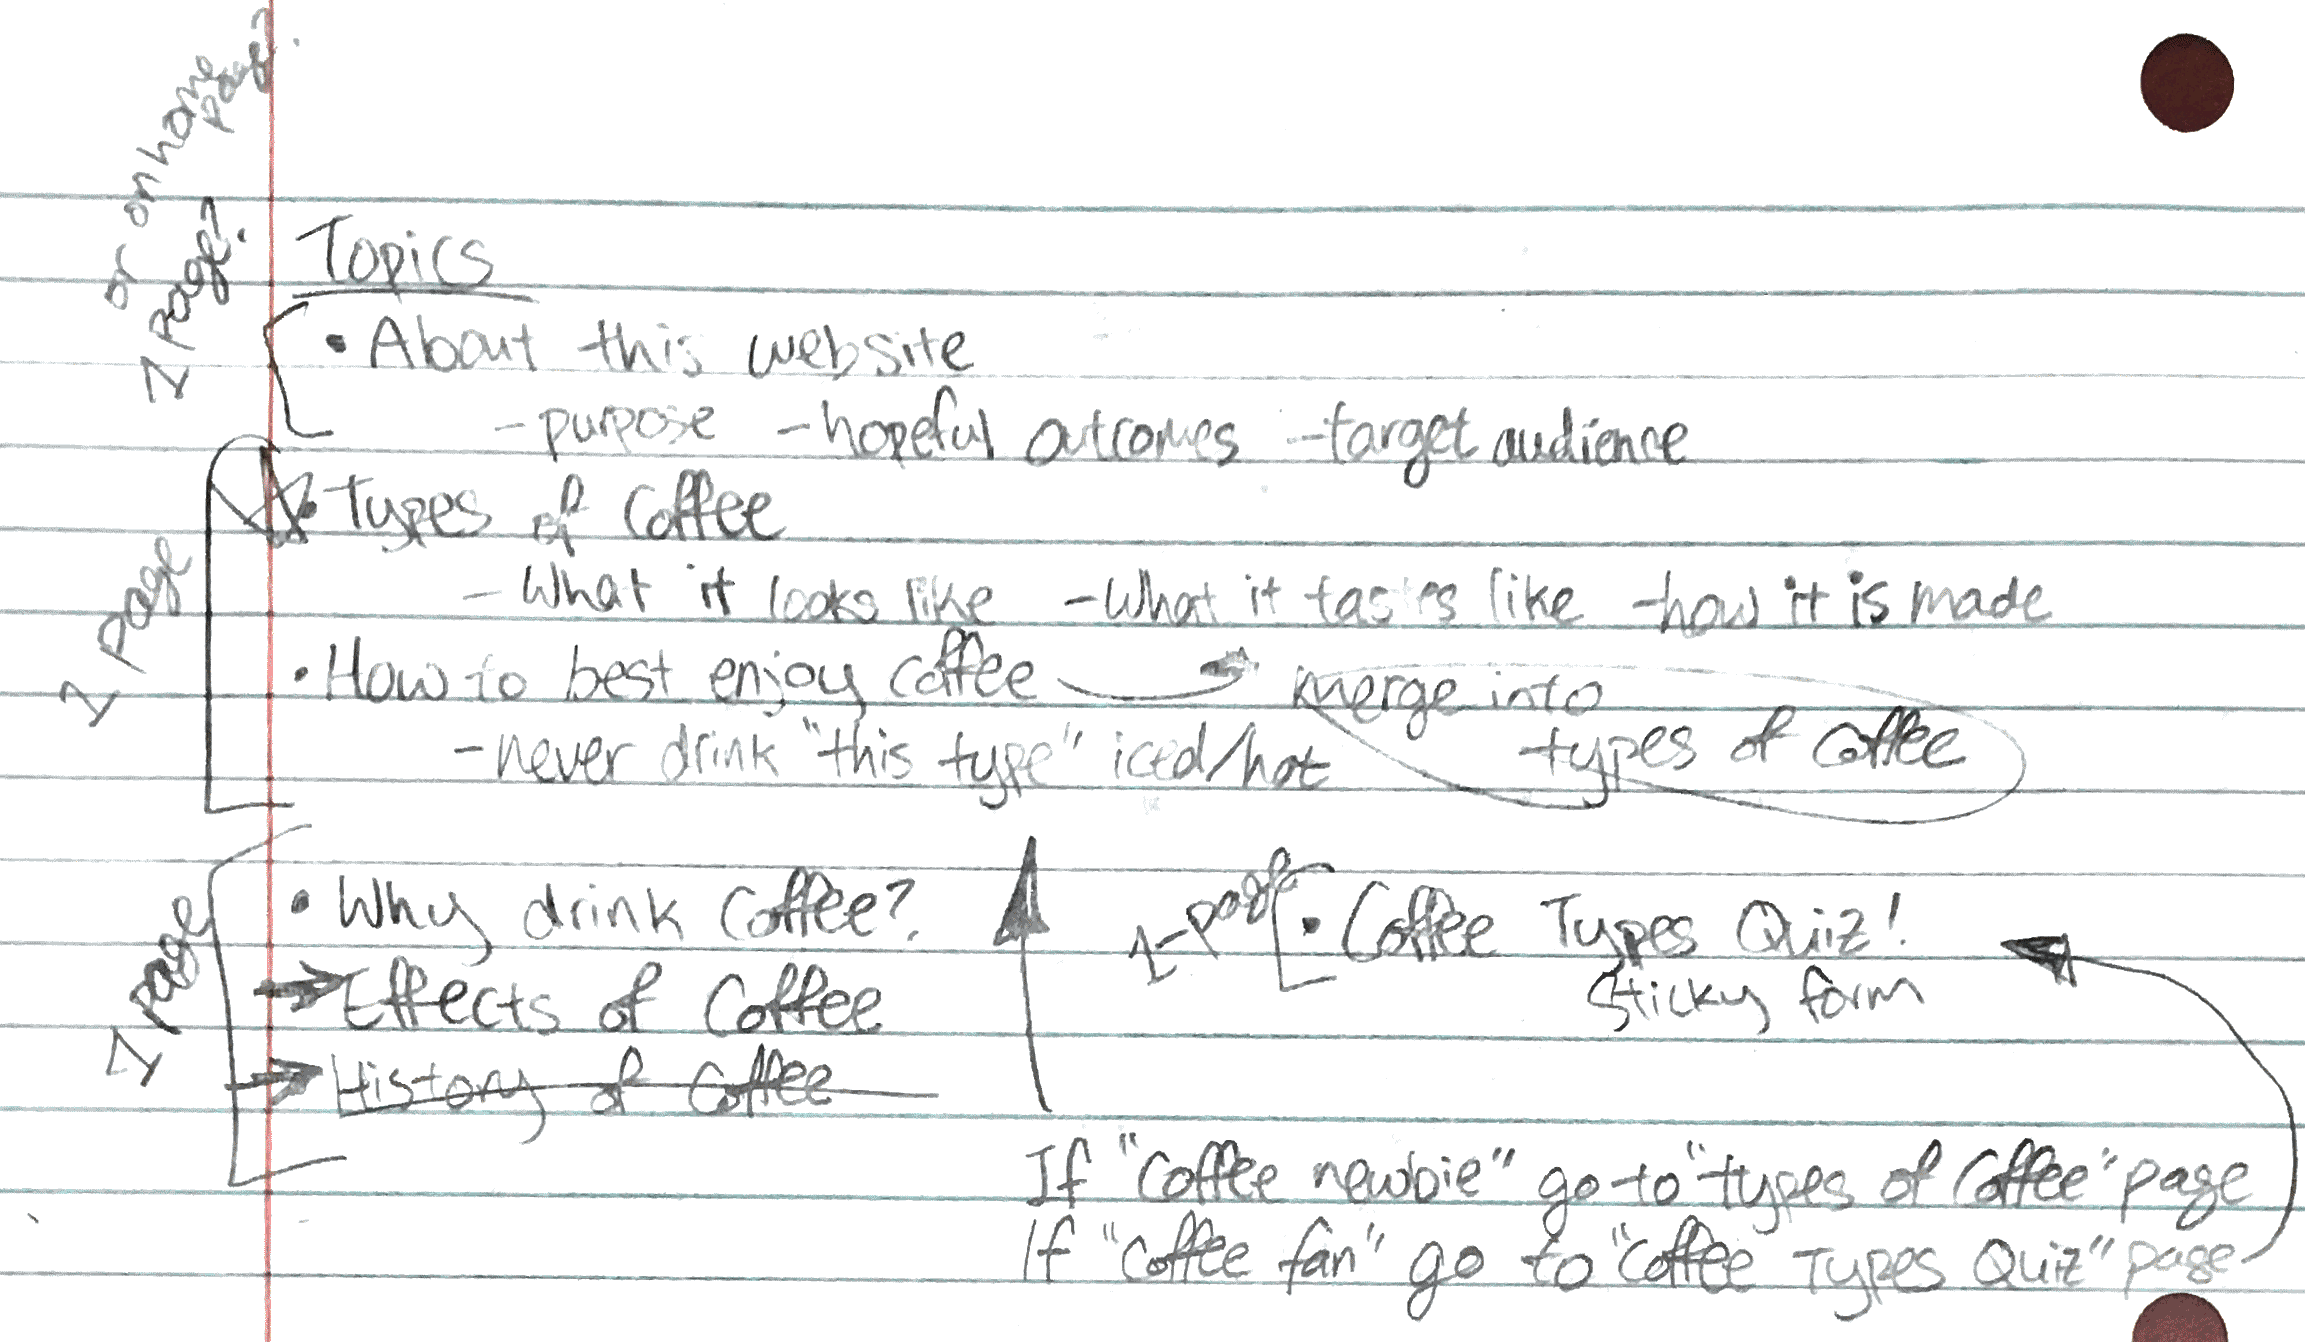 or on home
page?
1 page?
Topics
• About this website
- purpose - hopeful outcomes - target audience
1 page
• Types of Coffee
- What it looks like - What it tastes like - how it is made
• How to best enjoy coffee merge into
types of coffee
- never drink "this type" iced/hot
1 page
• Why drink Coffee?
Effects of Coffee
History of Coffee
1-page
• Coffee Types Quiz!
Sticky form
If "Coffee newbie" go to "types of Coffee" page
If "Coffee fan" go to "Coffee Types Quiz" page